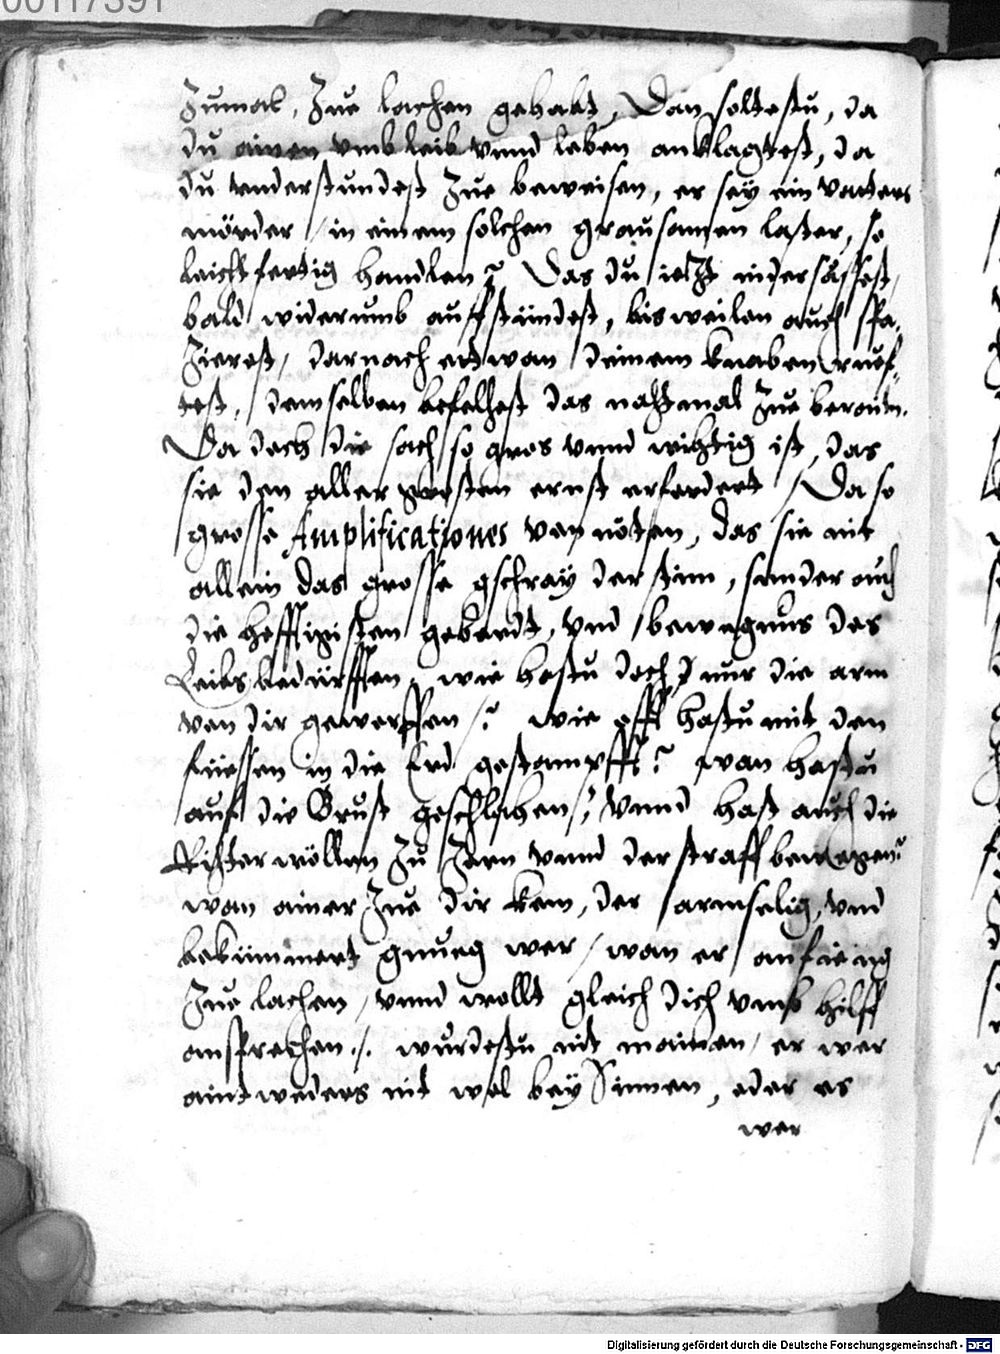 00117391
Zumal, Zue lachen gehabt, Dan soltestu, da
du ainen vmb leib vnnd leben anklagtest, da
du vnderstundest Zue beweisen, er sey ein vatters
mörder / in einem solchen grausamen laster, so
leichtfertig handlen? Das du ietzt nidersässest,
bald widerumb auffstündest, bisweilen auch spa,
Zierest / darnach ettwan deinem knaben rüef,
test, demselben befelhest das nachtmal Zue beraitn.
Da doch die sach so gros vnnd wichtig ist, das
sie den aller grösten ernst erfordert / Da so
grosse Amplificationes von nöten, das sie nit
allein das grosse gschray der stim, sunder auch
die hefftigisten geberdt, vnd bewegnus des
Leibs bedürffen, wie hastu doch nur die arm
von dir geworffen /? wie offt hastu mit den
füessen in die Erd gestampfft? wan hastu
auf die Brust geschlahen /? Vnnd hast auch die
Richter wöllen Zu Zorn vnnd der straff bewegen?
wan ainer Zue dir kem, der armselig, vnd
bekümmert gnueg wer / wan er anfieng
Zue lachen / vnnd wollt gleich dich vmb hilff
ansprechen ./. wurdestu nit mainen / er wer
aintweders nit wol bey Sinnen, oder es
wer
Digitalisierung gefördert durch die Deutsche Forschungsgemeinschaft - DFG